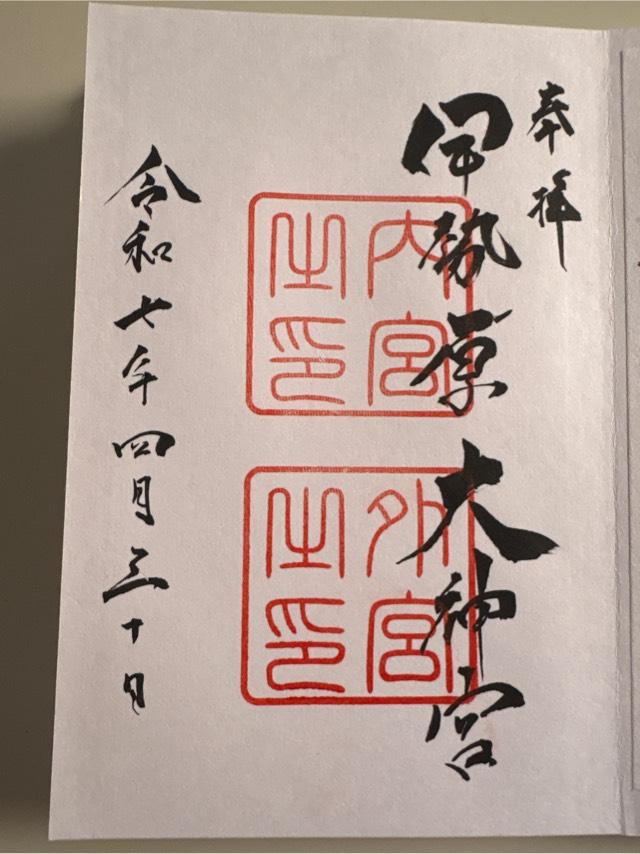 奉拝
伊勢原大神宮
内宮
之印
外宮
之印
令和七年四月三十日